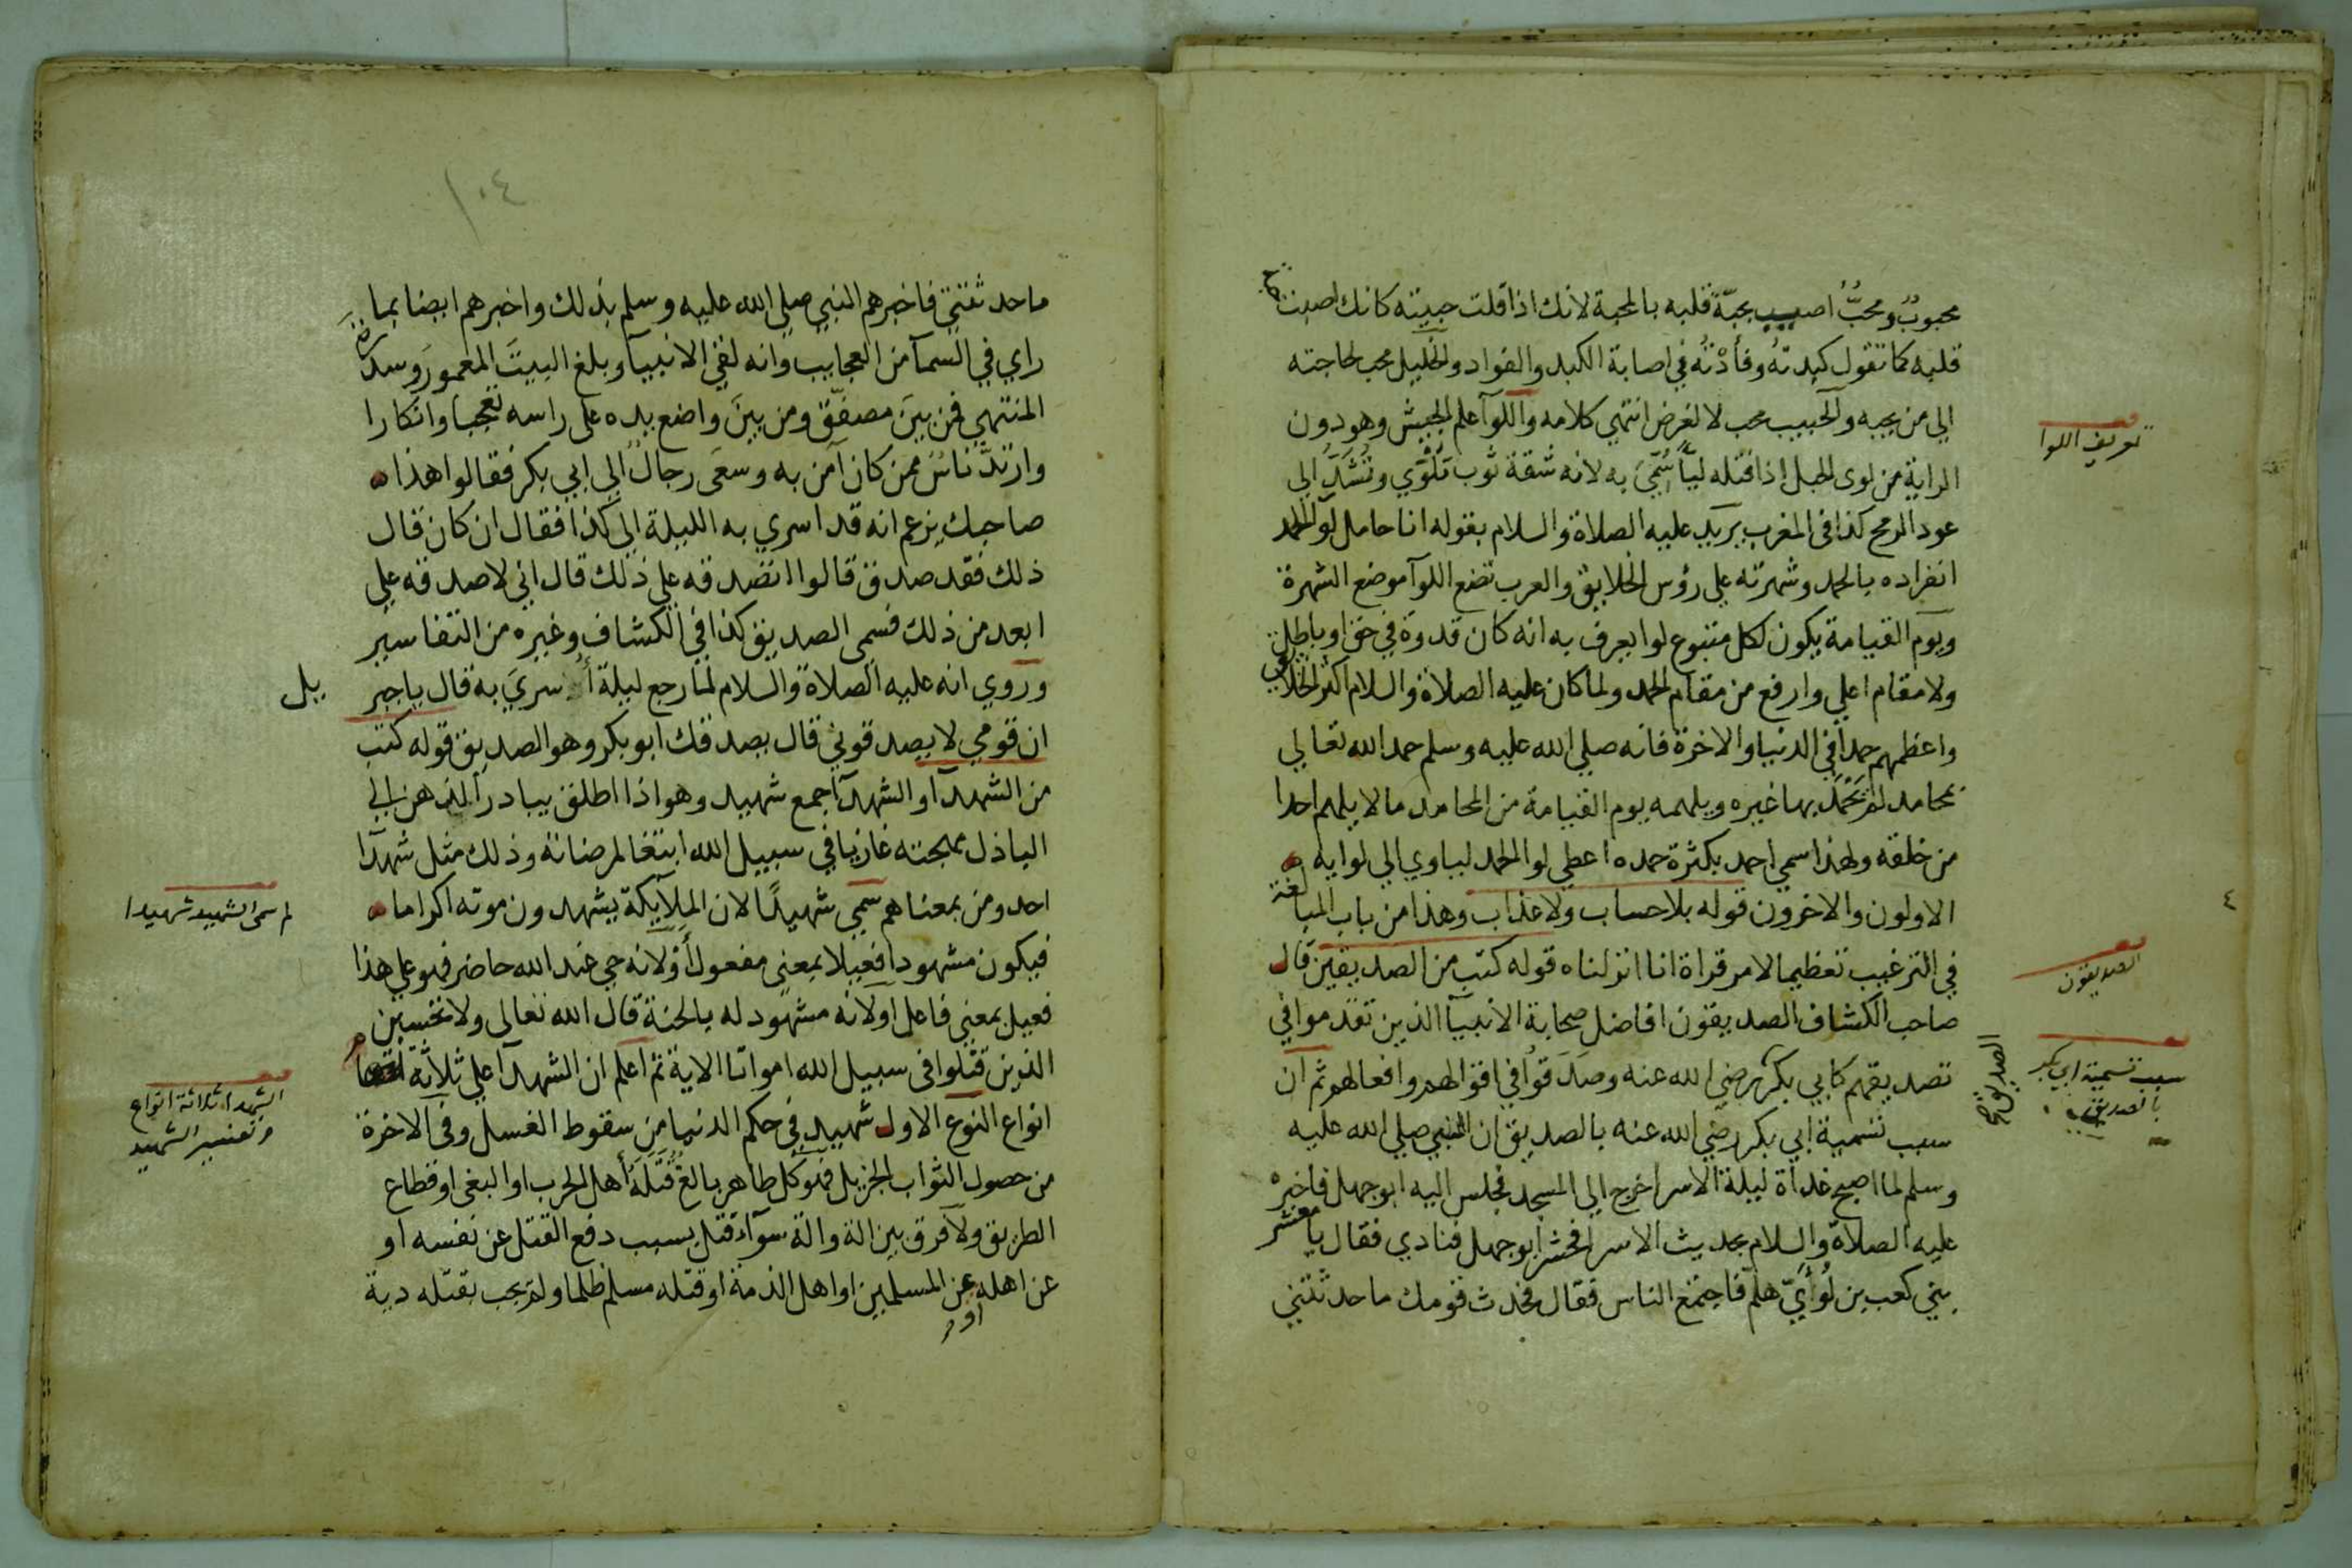 محبوبٌ ومحبٌّ اصيب بحبّة قلبه بالمحبة لانك اذا قلت حببته كانك اصبت حبة
قلبه كما تقول كبدتهُ وفأدْتُه في اصابة الكبد والفواد والخليل محب لحاجته
الي من يحبه والحبيب محب لا لغرض انتهي كلامه واللوآ علم الجيش وهو دون
الراية من لوي الحبل اذا فتله ليّاً سُمّيَ به لانه شقة ثوب تلْوَي وتُشَدُّ الي
عود الرمح كذا في المغرب يريد عليه الصلاة والسلام بقوله انا حامل لوآ الحمد
انفراده بالحمد وشهرته علي رؤس الخلايق والعرب تضع اللوآ موضع الشهرة
ويوم القيامة يكون لكل متبوع لوا يعرف به انه كان قدوة في حق او باطل
ولا مقام اعلي وارفع من مقام الحمد ولما كان عليه الصلاة والسلام اكثر الخلايق
واعظمهم حمداً في الدنيا والاخرة فانه صلي الله عليه وسلم حمد الله تعالي
بمحامد لم يَحْمَد بها غيره ويلهمه يوم القيامة من المحامد ما لا يلهم احدا
من خلقه ولهذا سمي احمد بكثرة حمده اعطي لوا الحمد لياوي الي لوايه
الاولون والاخرون قوله بلا حساب ولا عذاب وهذا من باب المبالغة
في الترغيب تعظيما لامر قراة انا انزلناه قوله كتب من الصديقين قال
صاحب الكشاف الصديقون افاضل صحابة الانبيآ الذين تقدموا في
تصديقهم كابي بكر رضي الله عنه وصَدَقوا في اقوالهم وافعالهم ثم ان
سبب تسمية ابي بكر رضي الله عنه بالصديق ان النبي صلي الله عليه
وسلم لما اصبح غداة ليلة الاسرا خرج الي المسجد فجلس اليه ابو جهل فاخبره
عليه الصلاة والسلام بحديث الاسرا فحشر ابو جهل فنادي فقال يا معشر
بني كعب بن لُؤَيّ هلم فاجتمع الناس فقال فحدث قومك ما حدثتني
تعريف اللوا
الصديقون
سبب تسمية ابي بكر
بالصديق
٤
١٠٤
ما حدثتني فاخبرهم النبي صلي الله عليه وسلم بذلك واخبرهم ايضا بما
راي في السمآ من العجايب وانه لقي الانبيآ وبلغ البيتَ المعمورَ وسدرة
المنتهي فمن بينَ مصفّق ومن بينَ واضع يده علي راسه تعجباً وانكارا
وارتدّ ناسٌ ممن كان آمن به وسعَي رجالٌ الي ابي بكر فقالوا هذا
صاحبك يزعم انه قد اسري به الليلة الي كذا فقال ان كان قال
ذلك فقد صدق قالوا اتصدقه علي ذلك قال اني لاصدقه علي
ابعد من ذلك فسمي الصديق كذا في الكشاف وغيره من التفاسير
وروي انه عليه الصلاة والسلام لما رجع ليلة أُسريَ به قال يا جبريل
ان قومي لا يصدقوني قال يصدقك ابو بكر وهو الصديق قوله كتب
من الشهدآ والشهدآ جمع شهيد وهو اذا اطلق يبادر الذهن الي
الباذل مهجته غازيا في سبيل الله ابتغا لمرضاته وذلك مثل شهدآ
احد ومن بمعناهم سمي شهيدًا لان الملآيكة يشهدون موته اكراما
فيكون مشهودا فعيلا بمعني مفعول أوْ لانه حي عند الله حاضر فهو علي هذا
فعيل بمعني فاعل او لانه مشهود له بالجنة قال الله تعالي ولا تحسبن
الذين قتلوا في سبيل الله امواتا الاية ثم اعلم ان الشهدآ علي ثلاثة
انواع النوع الاول شهيد في حكم الدنيا من سقوط الغسل وفي الاخرة
من حصول الثواب الجزيل فهو كل طاهر بالغ قَتَلَهُ أهل الحرب او البغي او قطاع
الطريق ولا فرق بين الة والة سوآء قتل بسبب دفع القتل عن نفسه او
عن اهله او عن المسلمين او اهل الذمة او قتله مسلم ظلما ولم يجب بقتله دية
لم سمي الشهيد شهيدا
الشهدا ثلاثة انواع
وتفسير الشهيد